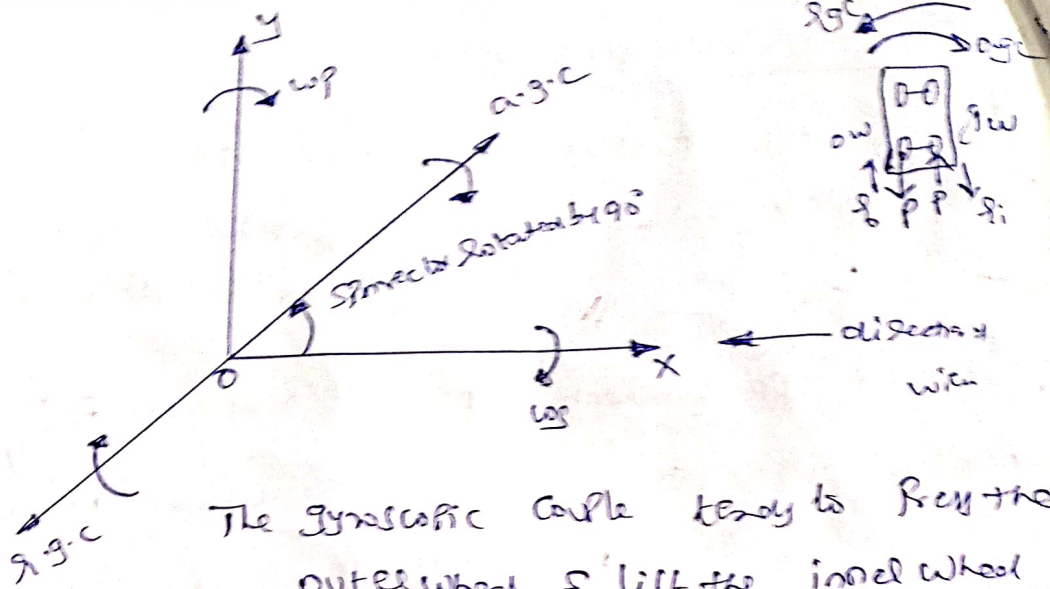 y
ωp
a.g.c
Spin vector Rotated by 90°
x
ωs
O
r.g.c
rgc
agc
ow
iw
Ro P P Ri
direction of
view
The gyroscopic Couple tends to Press the
outer wheel & lift the inner wheel